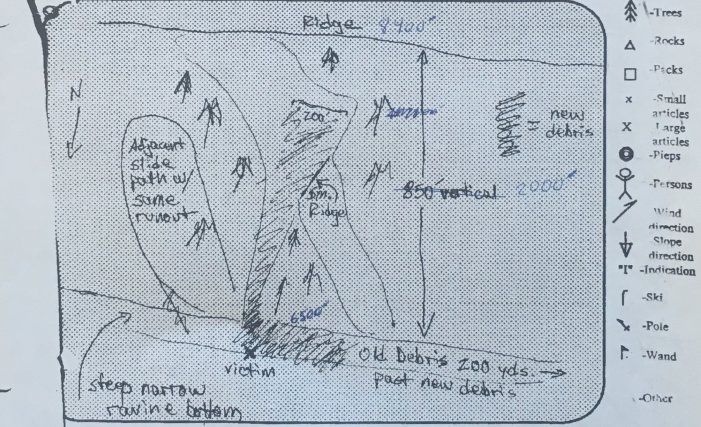 Ridge 8400'
N
200'
= new
debris
Adjacent
slide
path w/
same
runout
sm.
Ridge
850' vertical 2000'
6500'
victim
Old Debris 200 yds.
past new debris
steep narrow
ravine bottom
-Trees
-Rocks
-Packs
-Small
articles
-Large
articles
-Pieps
-Persons
Wind
direction
-Slope
direction
"I" -Indication
-Ski
-Pole
-Wand
-Other